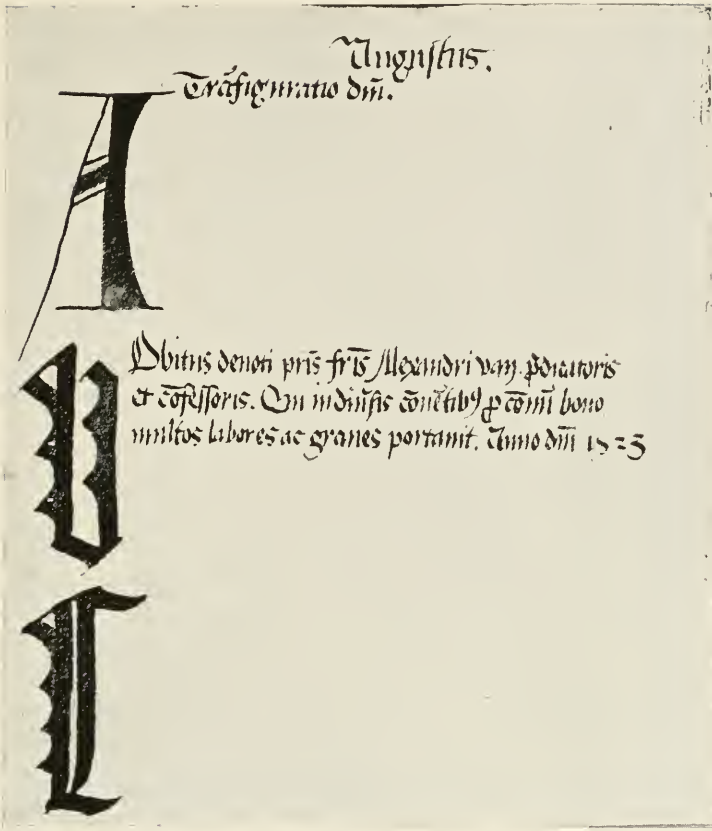 Augustus.
Trāsfiguratio dm̄.
A
Obitus deuoti pr̄is fr̄is Alexandri vaÿ. p̄dicatoris
et cōfessoris. Qui in diu̾sis cōuētibꝰ ꝓ cōmūi bono
multos labores ac graues portauit. Anno dm̄i 1525
b
c